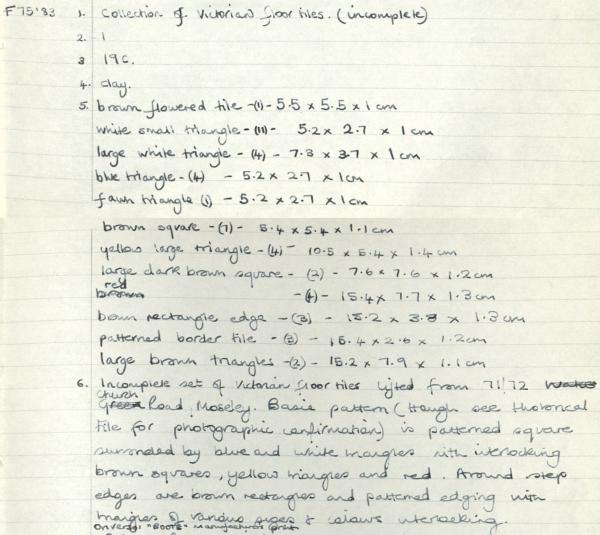 F75'83 1. Collection of Victorian floor tiles. (incomplete)
2. 1
3 19C.
4. clay.
5. brown flowered tile -(1)- 5.5 x 5.5 x 1 cm
white small triangle -(11)- 5.2 x 2.7 x 1 cm
large white triangle -(4) - 7.3 x 3.7 x 1 cm
blue triangle -(4) - 5.2 x 2.7 x 1 cm
fawn triangle (1) - 5.2 x 2.7 x 1 cm
brown square -(7)- 5.4 x 5.4 x 1.1 cm
yellow large triangle -(4)- 10.5 x 5.4 x 1.4 cm
large dark brown square - (2) - 7.6 x 7.6 x 1.2 cm
red
brown -(4)- 15.4 x 7.7 x 1.3 cm
brown rectangle edge -(3)- 15.2 x 3.8 x 1.3 cm
patterned border tile - (3) - 15.4 x 2.6 x 1.2 cm
large brown triangles -(2)- 15.2 x 7.9 x 1.1 cm
6. Incomplete set of Victorian floor tiles lifted from 71/72
Church
Green Road, Moseley. Basic pattern (though see Historical
file for photographic confirmation) is patterned square
surrounded by blue and white triangles with interlocking
brown squares, yellow triangles and red. Around step
edges are brown rectangles and patterned edging with
triangles of various sizes & colours interlocking.
"BOOTE" Manufacturers print